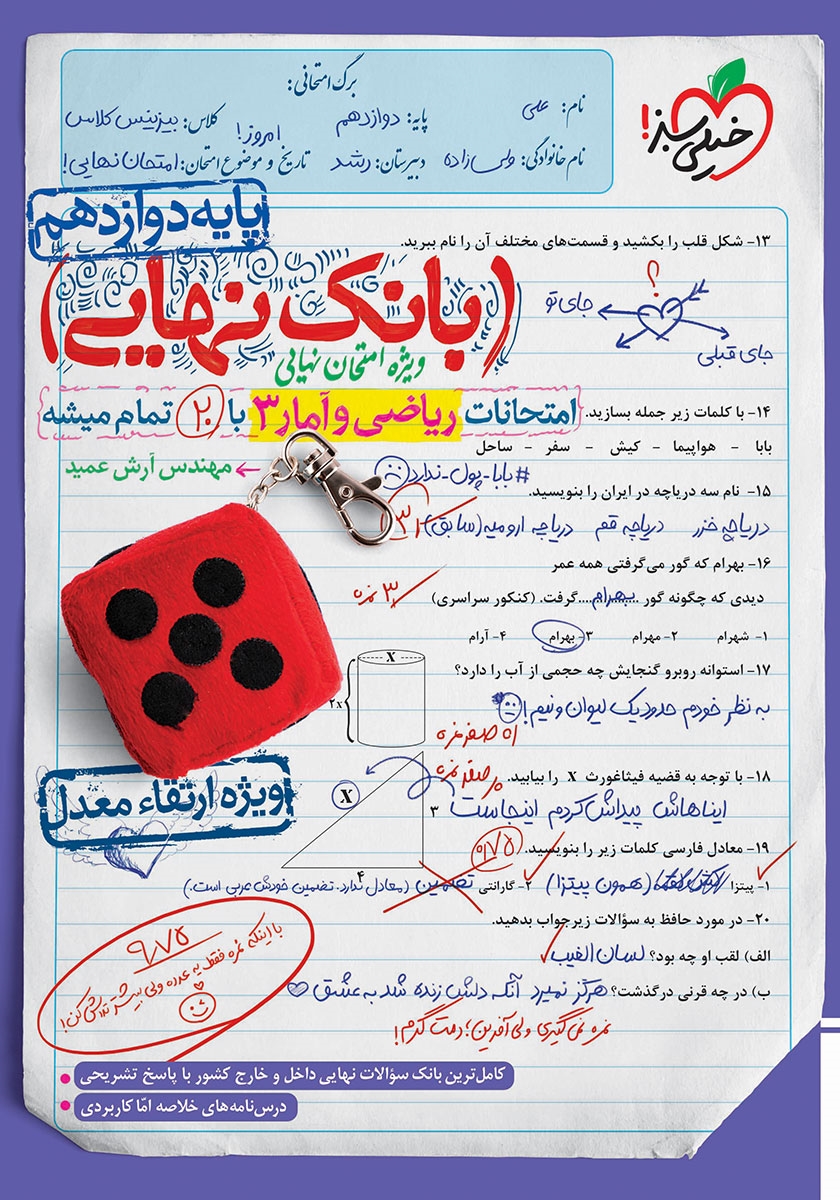 برگ امتحانی:
نام: علی
پایه: دوازدهم
کلاس: بیزینس کلاس
نام خانوادگی: ولی زاده
دبیرستان: رشد
تاریخ و موضوع امتحان: امتحان نهایی!
امروز!
خیلی سبز!
پایه دوازدهم
۱۳- شکل قلب را بکشید و قسمت‌های مختلف آن را نام ببرید.
(بانک نهایی)
؟
جای تو
جای قبلی
ویژه امتحان نهایی
۱۴- با کلمات زیر جمله بسازید.
امتحانات ریاضی و آمار ۳ با ۲۰ تمام میشه
بابا - هواپیما - کیش - سفر - ساحل
#بابا-پول-ندارد
مهندس آرش عمید
۱۵- نام سه دریاچه در ایران را بنویسید.
دریاچه خزر دریاچه قم دریاچه ارومیه (سابق)
۱۶- بهرام که گور می‌گرفتی همه عمر
دیدی که چگونه گور ....بهرام.... گرفت. (کنکور سراسری)
۳ نمره
۱- شهرام ۲- مهرام ۳- بهرام ۴- آرام
۱۷- استوانه روبرو گنجایش چه حجمی از آب را دارد؟
X
۲x
به نظر خودم حدود یک لیوان و نیم!
اه صفر نمره
۱۸- با توجه به قضیه فیثاغورث X را بیابید.
صفر نمره
X
۳
۴
ایناهاش پیداش کردم اینجاست
ویژه ارتقاء معدل
۱۹- معادل فارسی کلمات زیر را بنویسید.
۰/۷۵
۱- پیتزا (همون پیتزا) ۲- گارانتی تضمین (معادل ندارد. تضمین خودش عربی است.)
۲۰- در مورد حافظ به سؤالات زیر جواب بدهید.
الف) لقب او چه بود؟ لسان الغیب
ب) در چه قرنی درگذشت؟ هرگز نمیرد آنکه دلش زنده شد به عشق
نمره نمی‌گیری ولی آفرین؛ دمت گرم!
۹/۷۵
با اینکه نمره فقط یه عدده ولی بیشتر تلاش کن!
کامل‌ترین بانک سؤالات نهایی داخل و خارج کشور با پاسخ تشریحی
درس‌نامه‌های خلاصه امّا کاربردی